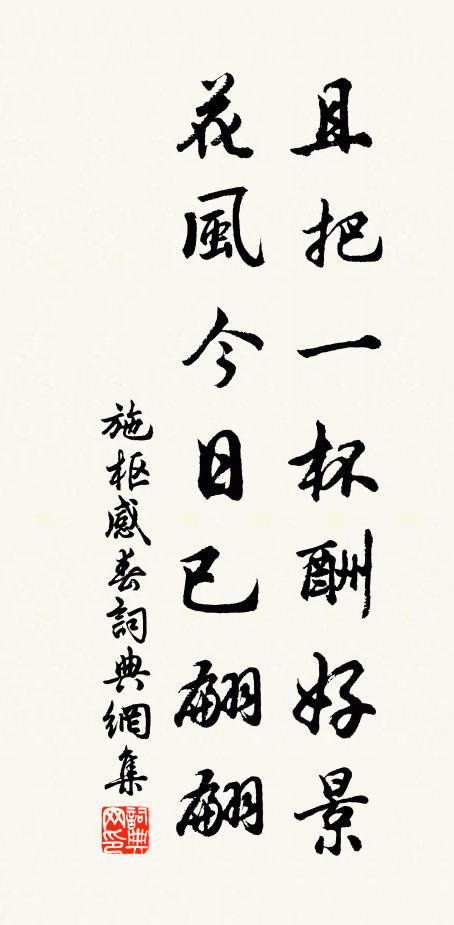 且把一杯酬好景
花風今日已翩翩
施枢感春詞典網集
詞典網印